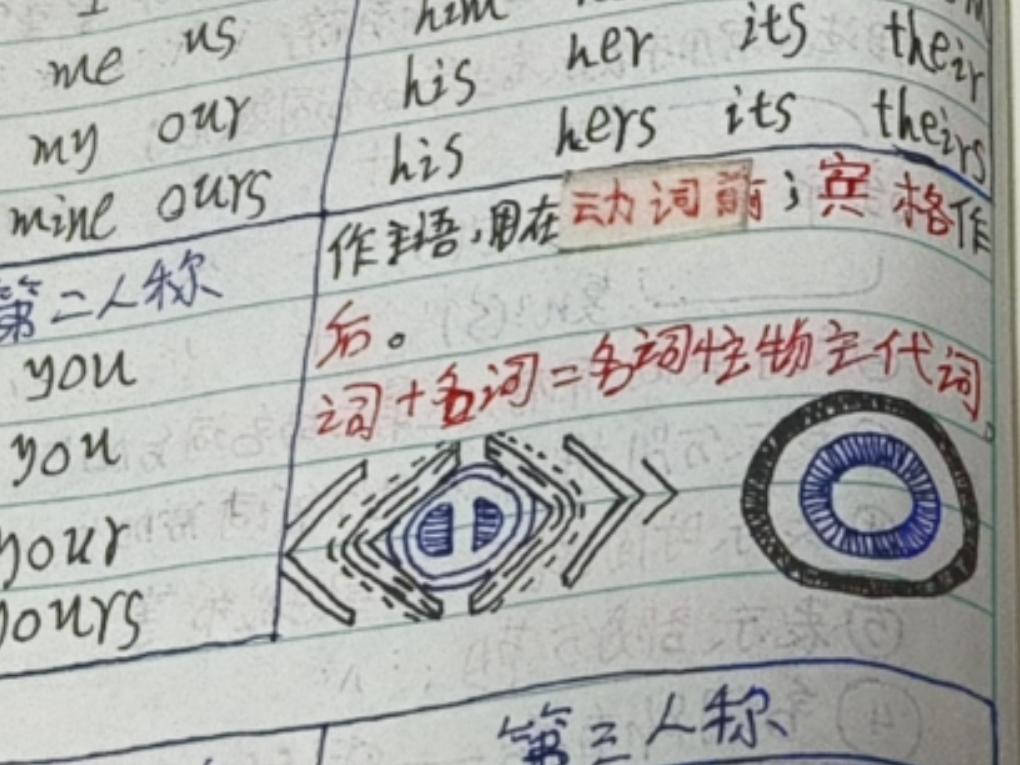 me us
him
his her its their
my our
his hers its theirs
mine ours
作主语，用在动词前；宾格作
第二人称
后。
you
词+名词=名词性物主代词
you
your
yours
第三人称